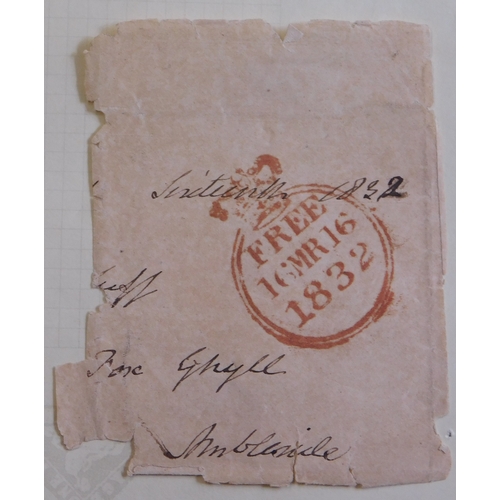 Sixteenth 1832
FREE
16MR16
1832
uff
Fox Ghyll
Ambleside